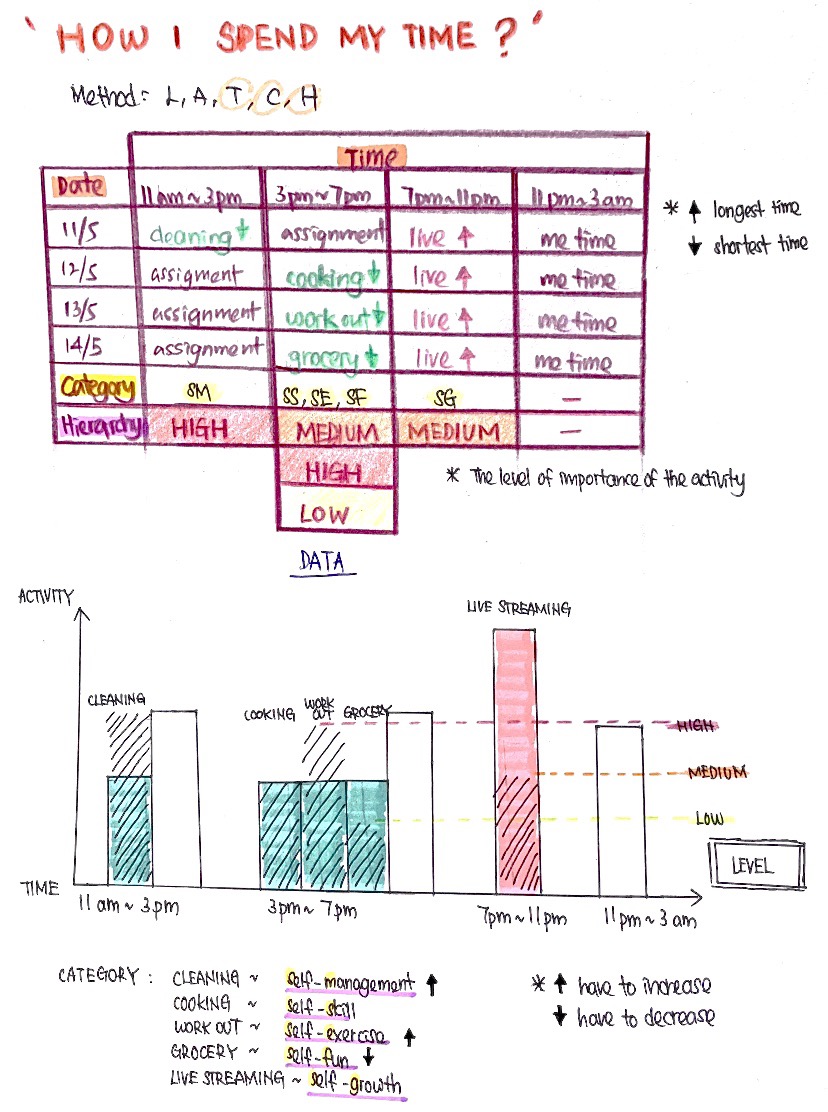 'HOW I SPEND MY TIME ?'
Method: L, A, T, C, H
Time
Date 11am ~ 3pm 3pm ~ 7pm 7pm ~ 11pm 11pm ~ 3am
* ↑ longest time
↓ shortest time
11/5 cleaning ↓ assignment live ↑ me time
12/5 assigment cooking ↓ live ↑ me time
13/5 assignment work out ↓ live ↑ me time
14/5 assignment grocery ↓ live ↑ me time
Category SM SS, SE, SF SG —
Hierarchy HIGH MEDIUM MEDIUM —
HIGH
LOW
* The level of importance of the activity
DATA
ACTIVITY
LIVE STREAMING
CLEANING
COOKING WORK OUT GROCERY
HIGH
MEDIUM
LOW
LEVEL
TIME
11 am ~ 3 pm 3pm ~ 7pm 7pm ~ 11pm 11pm ~ 3 am
CATEGORY : CLEANING ~ self-management ↑
COOKING ~ self-skill
WORK OUT ~ self-exercise ↑
GROCERY ~ self-fun ↓
LIVE STREAMING ~ self-growth
* ↑ have to increase
↓ have to decrease